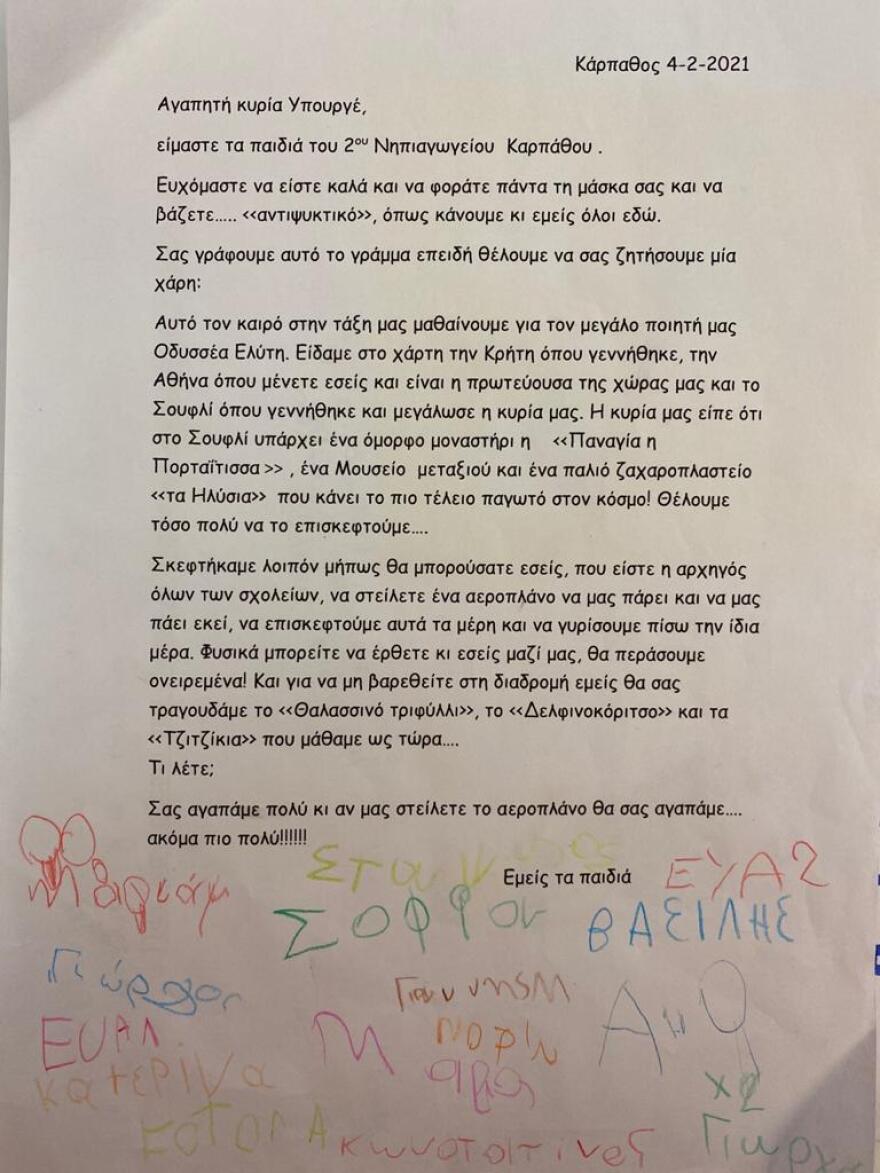 Κάρπαθος 4-2-2021
Αγαπητή κυρία Υπουργέ,
είμαστε τα παιδιά του 2ου Νηπιαγωγείου Καρπάθου .
Ευχόμαστε να είστε καλά και να φοράτε πάντα τη μάσκα σας και να
βάζετε..... <<αντιψυκτικό>>, όπως κάνουμε κι εμείς όλοι εδώ.
Σας γράφουμε αυτό το γράμμα επειδή θέλουμε να σας ζητήσουμε μία
χάρη:
Αυτό τον καιρό στην τάξη μας μαθαίνουμε για τον μεγάλο ποιητή μας
Οδυσσέα Ελύτη. Είδαμε στο χάρτη την Κρήτη όπου γεννήθηκε, την
Αθήνα όπου μένετε εσείς και είναι η πρωτεύουσα της χώρας μας και το
Σουφλί όπου γεννήθηκε και μεγάλωσε η κυρία μας. Η κυρία μας είπε ότι
στο Σουφλί υπάρχει ένα όμορφο μοναστήρι η <<Παναγία η
Πορταΐτισσα >> , ένα Μουσείο μεταξιού και ένα παλιό ζαχαροπλαστείο
<<τα Ηλύσια>> που κάνει το πιο τέλειο παγωτό στον κόσμο! Θέλουμε
τόσο πολύ να το επισκεφτούμε....
Σκεφτήκαμε λοιπόν μήπως θα μπορούσατε εσείς, που είστε η αρχηγός
όλων των σχολείων, να στείλετε ένα αεροπλάνο να μας πάρει και να μας
πάει εκεί, να επισκεφτούμε αυτά τα μέρη και να γυρίσουμε πίσω την ίδια
μέρα. Φυσικά μπορείτε να έρθετε κι εσείς μαζί μας, θα περάσουμε
ονειρεμένα! Και για να μη βαρεθείτε στη διαδρομή εμείς θα σας
τραγουδάμε το <<Θαλασσινό τριφύλλι>>, το <<Δελφινοκόριτσο>> και τα
<<Τζιτζίκια>> που μάθαμε ως τώρα....
Τι λέτε;
Σας αγαπάμε πολύ κι αν μας στείλετε το αεροπλάνο θα σας αγαπάμε....
ακόμα πιο πολύ!!!!!!
Εμείς τα παιδιά
ΒΑΣΙΛΗΣ
Γιώργος
κατερινα